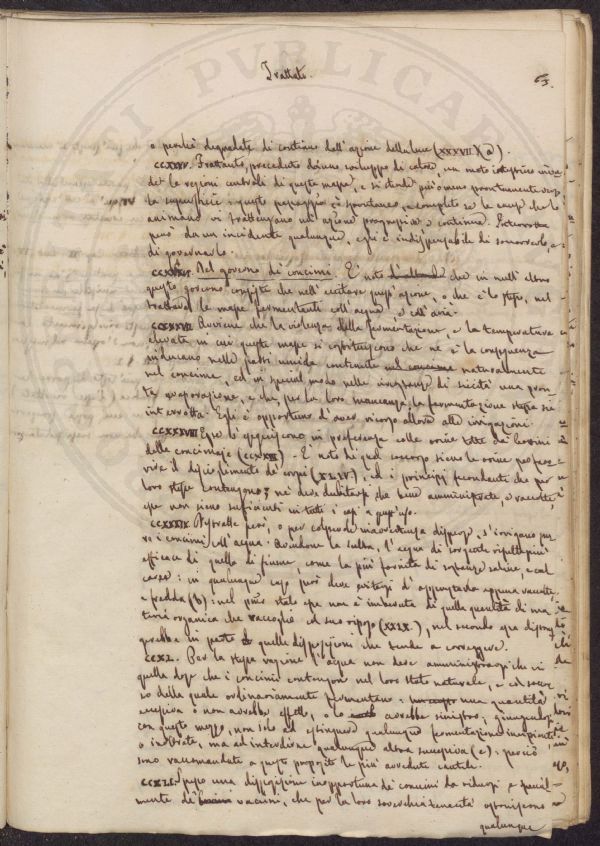 Trattato.
63.
o perchè degradate di continuo dall'azione della luce (XXXVII) (a).
CCXXXV. Frattanto, preceduto da uno sviluppo di calore, un moto intestino inva-
de le regioni centrali di queste masse, e si estende più o meno prontamente verso
la superficie: questo passaggio è spontaneo, e completo se le cause che lo
animano vi trattengano un'azione progressiva e continua.
può da un incidente qualunque, egli è indispensabile di soccorrerlo, e
di governarlo.
CCXXXVI. Del governo dei concimi. È noto che in null'altro
questo governo consista che nell'eccitare quest'azione, o che è lo stesso, nel
trattare le masse fermentanti coll'acqua, e coll'aria.
CCXXXVII. Avviene che la violenza della fermentazione, e la temperatura
elevata in cui queste masse si costituiscono che ne è la conseguenza
inducano nelle parti umide contenute naturalmente
nel concime, ed in special modo nelle circostanze di siccità una pron-
ta evaporazione, e che, per la loro mancanza, la fermentazione stessa sia
interrotta. Egli è opportuno d'aver ricorso allora alle irrigazioni.
CCXXXVIII. Esse si eseguiscono in preferenza colle orine tolte dai bottini
delle concimaje (CCXXIII). È noto di qual soccorso sieno le orine per favo-
rire il discioglimento de' corpi (XLIV), ed i principj fecondanti che per
loro stesse contengono; nè deve dubitarsi che bene amministrate, e raccolte,
esse non sieno sufficienti in tutti i casi a quest'uso.
CCXXXIX. però, o per colpevole inavvertenza disperse, s'irrigano pu-
re i concimi coll'acqua. Quindi l'acqua di sorgente risulta più
efficace di quella di fiume, come la più fornita di sostanze saline, e cal-
caree: in qualunque caso però deve evitarsi d'apprestarla appena raccolta,
e fredda (b): nel primo stato essa non è imbevuta di quella quantità di ma-
teria organica che raccoglie col suo riposo (XXIX), nel secondo essa distrug-
gerebbe in parte quelle disposizioni che tende a correggere.
CCXL. Per la stessa ragione l'acqua non deve amministrarsi che in
quella dose che i concimi contengono nel loro stato naturale, e col soccor-
so della quale ordinariamente fermentano: una quantità
eccessiva o non avrebbe effetto, o lo avrebbe sinistro, giungendo
con questo mezzo, non solo ad estinguere qualunque fermentazione incipiente
o inoltrata, ma ad interdirne qualunque altra successiva (c): perciò
sono raccomandate a questo proposito le più avvedute cautele.
CCXLI. Spesso una disposizione inopportuna de' concimi da ridursi, e special-
mente de' vaccini, che per la loro soverchia tenacità oppongono
qualunque